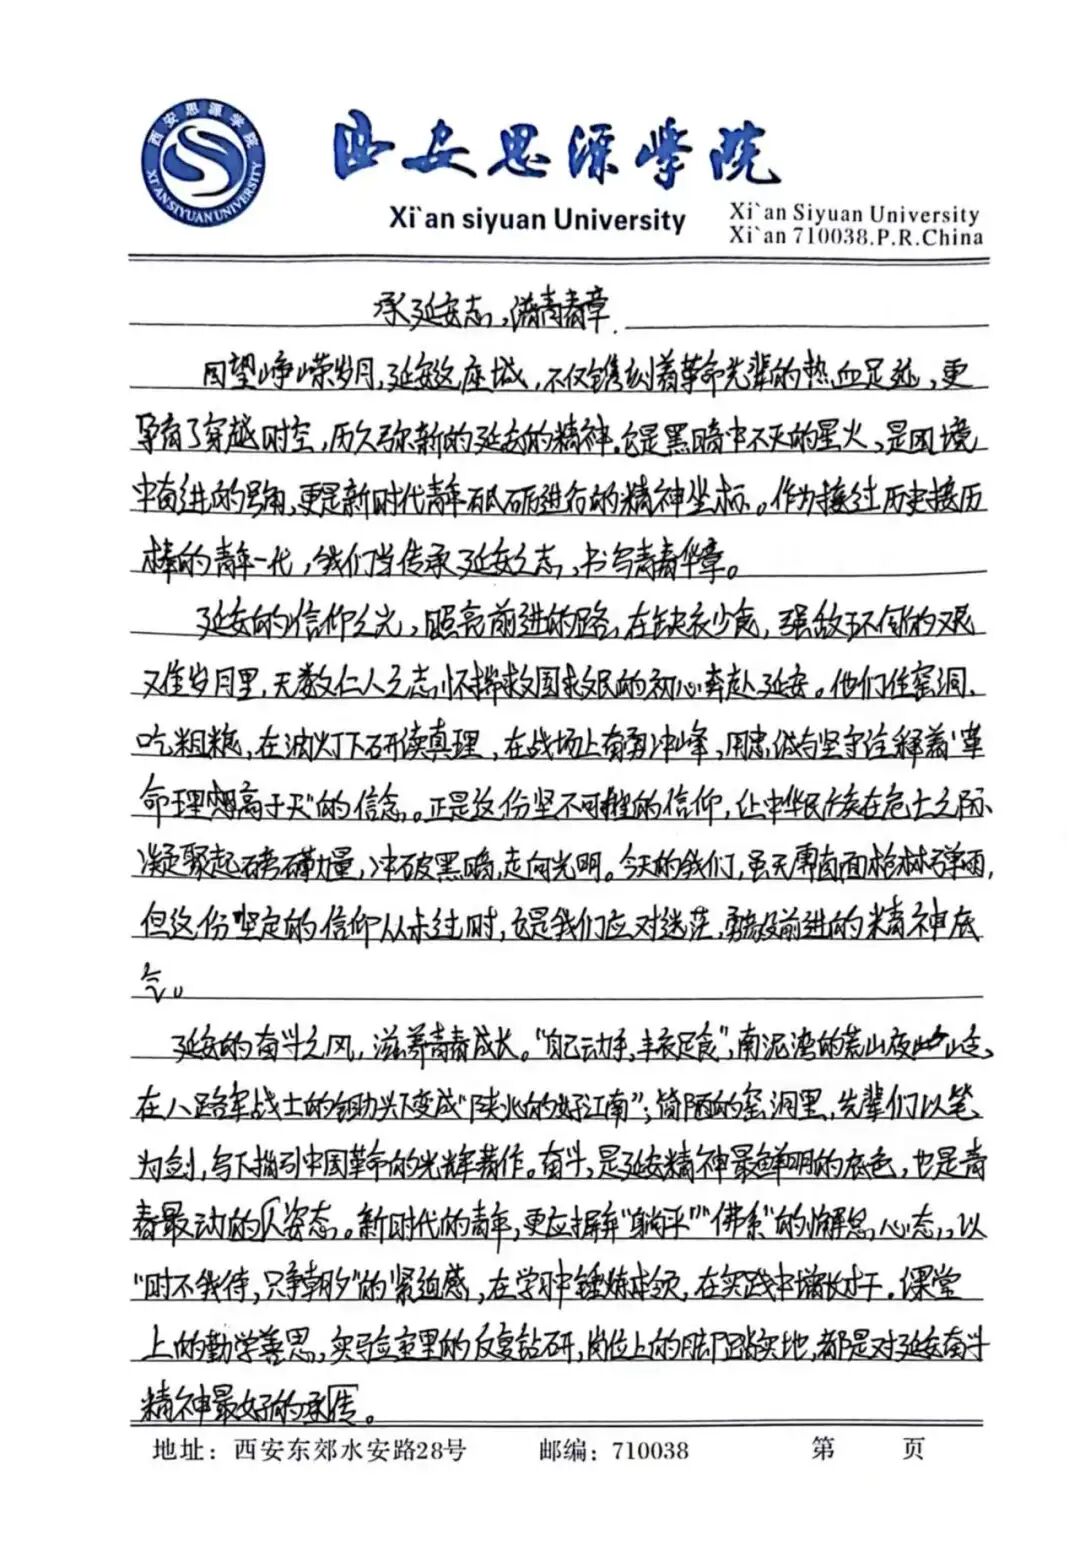 西安思源学院
XI'AN SIYUAN UNIVERSITY
西安思源学院
Xi`an siyuan University
Xi`an Siyuan University
Xi`an 710038.P.R.China
承延安志，谱青春章
回望峥嵘岁月，延安这座城，不仅镌刻着革命先辈的热血足迹，更
孕育了穿越时空，历久弥新的延安的精神。它是黑暗中不灭的星火，是困境
中奋进的号角，更是新时代青年砥砺进行的精神坐标。作为接过历史接历
棒的青年一代，我们当传承延安之志，书写青春华章。
延安的信仰之光，照亮前进的路，在缺衣少食，强敌环伺的艰
难岁月里，无数仁人之志怀揣救国救民的初心奔赴延安。他们住窑洞、
吃粗粮，在油灯下研读真理，在战场上奋勇冲峰，用忠诚与坚守诠释着“革
命理想高于天”的信念。正是这份坚不可摧的信仰，让中华民族在危亡之际
凝聚起磅礴力量，冲破黑暗，走向光明。今天的我们，虽无需直面枪林弹雨，
但这份坚定的信仰从未过时，它是我们应对迷茫，勇毅前进的精神底
气。
延安的奋斗之风，滋养青春成长。“自己动手，丰衣足食”，南泥湾的荒山
在八路军战士的锄头下变成“陕北的好江南”；简陋的窑洞里，先辈们以笔
为剑，写下指引中国革命的光辉著作。奋斗，是延安精神最鲜明的底色，也是青
春最动的姿态。新时代的青年，更应摒弃“躺平”“佛系”的懈怠心态，以
“时不我待，只争朝夕”的紧迫感，在学习中锤炼本领，在实践中增长才干。课堂
上的勤学善思，实验室里的反复钻研，岗位上的脚踏实地，都是对延安奋斗
精神最好的承传。
地址：西安东郊水安路28号 邮编：710038 第 页